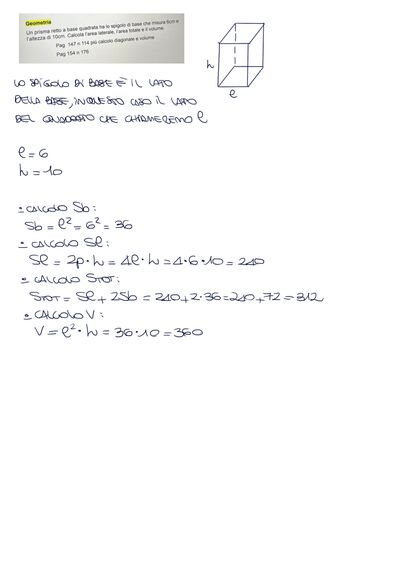 Geometria
Un prisma retto a base quadrata ha lo spigolo di base che misura 6cm e
l'altezza di 10cm. Calcola l'area laterale, l'area totale e il volume.
Pag. 147 n 114 più calcolo diagonale e volume
Pag 154 n 176
h
l
LO SPIGOLO DI BASE È IL LATO
DELLA BASE, IN QUESTO CASO IL LATO
DEL QUADRATO CHE CHIAMEREMO l
l = 6
h = 10
• CALCOLO Sb:
Sb = l² = 6² = 36
• CALCOLO Sl:
Sl = 2p · h = 4l · h = 4 · 6 · 10 = 240
• CALCOLO STOT:
STOT = Sl + 2Sb = 240 + 2 · 36 = 240 + 72 = 312
• CALCOLO V:
V = l² · h = 36 · 10 = 360